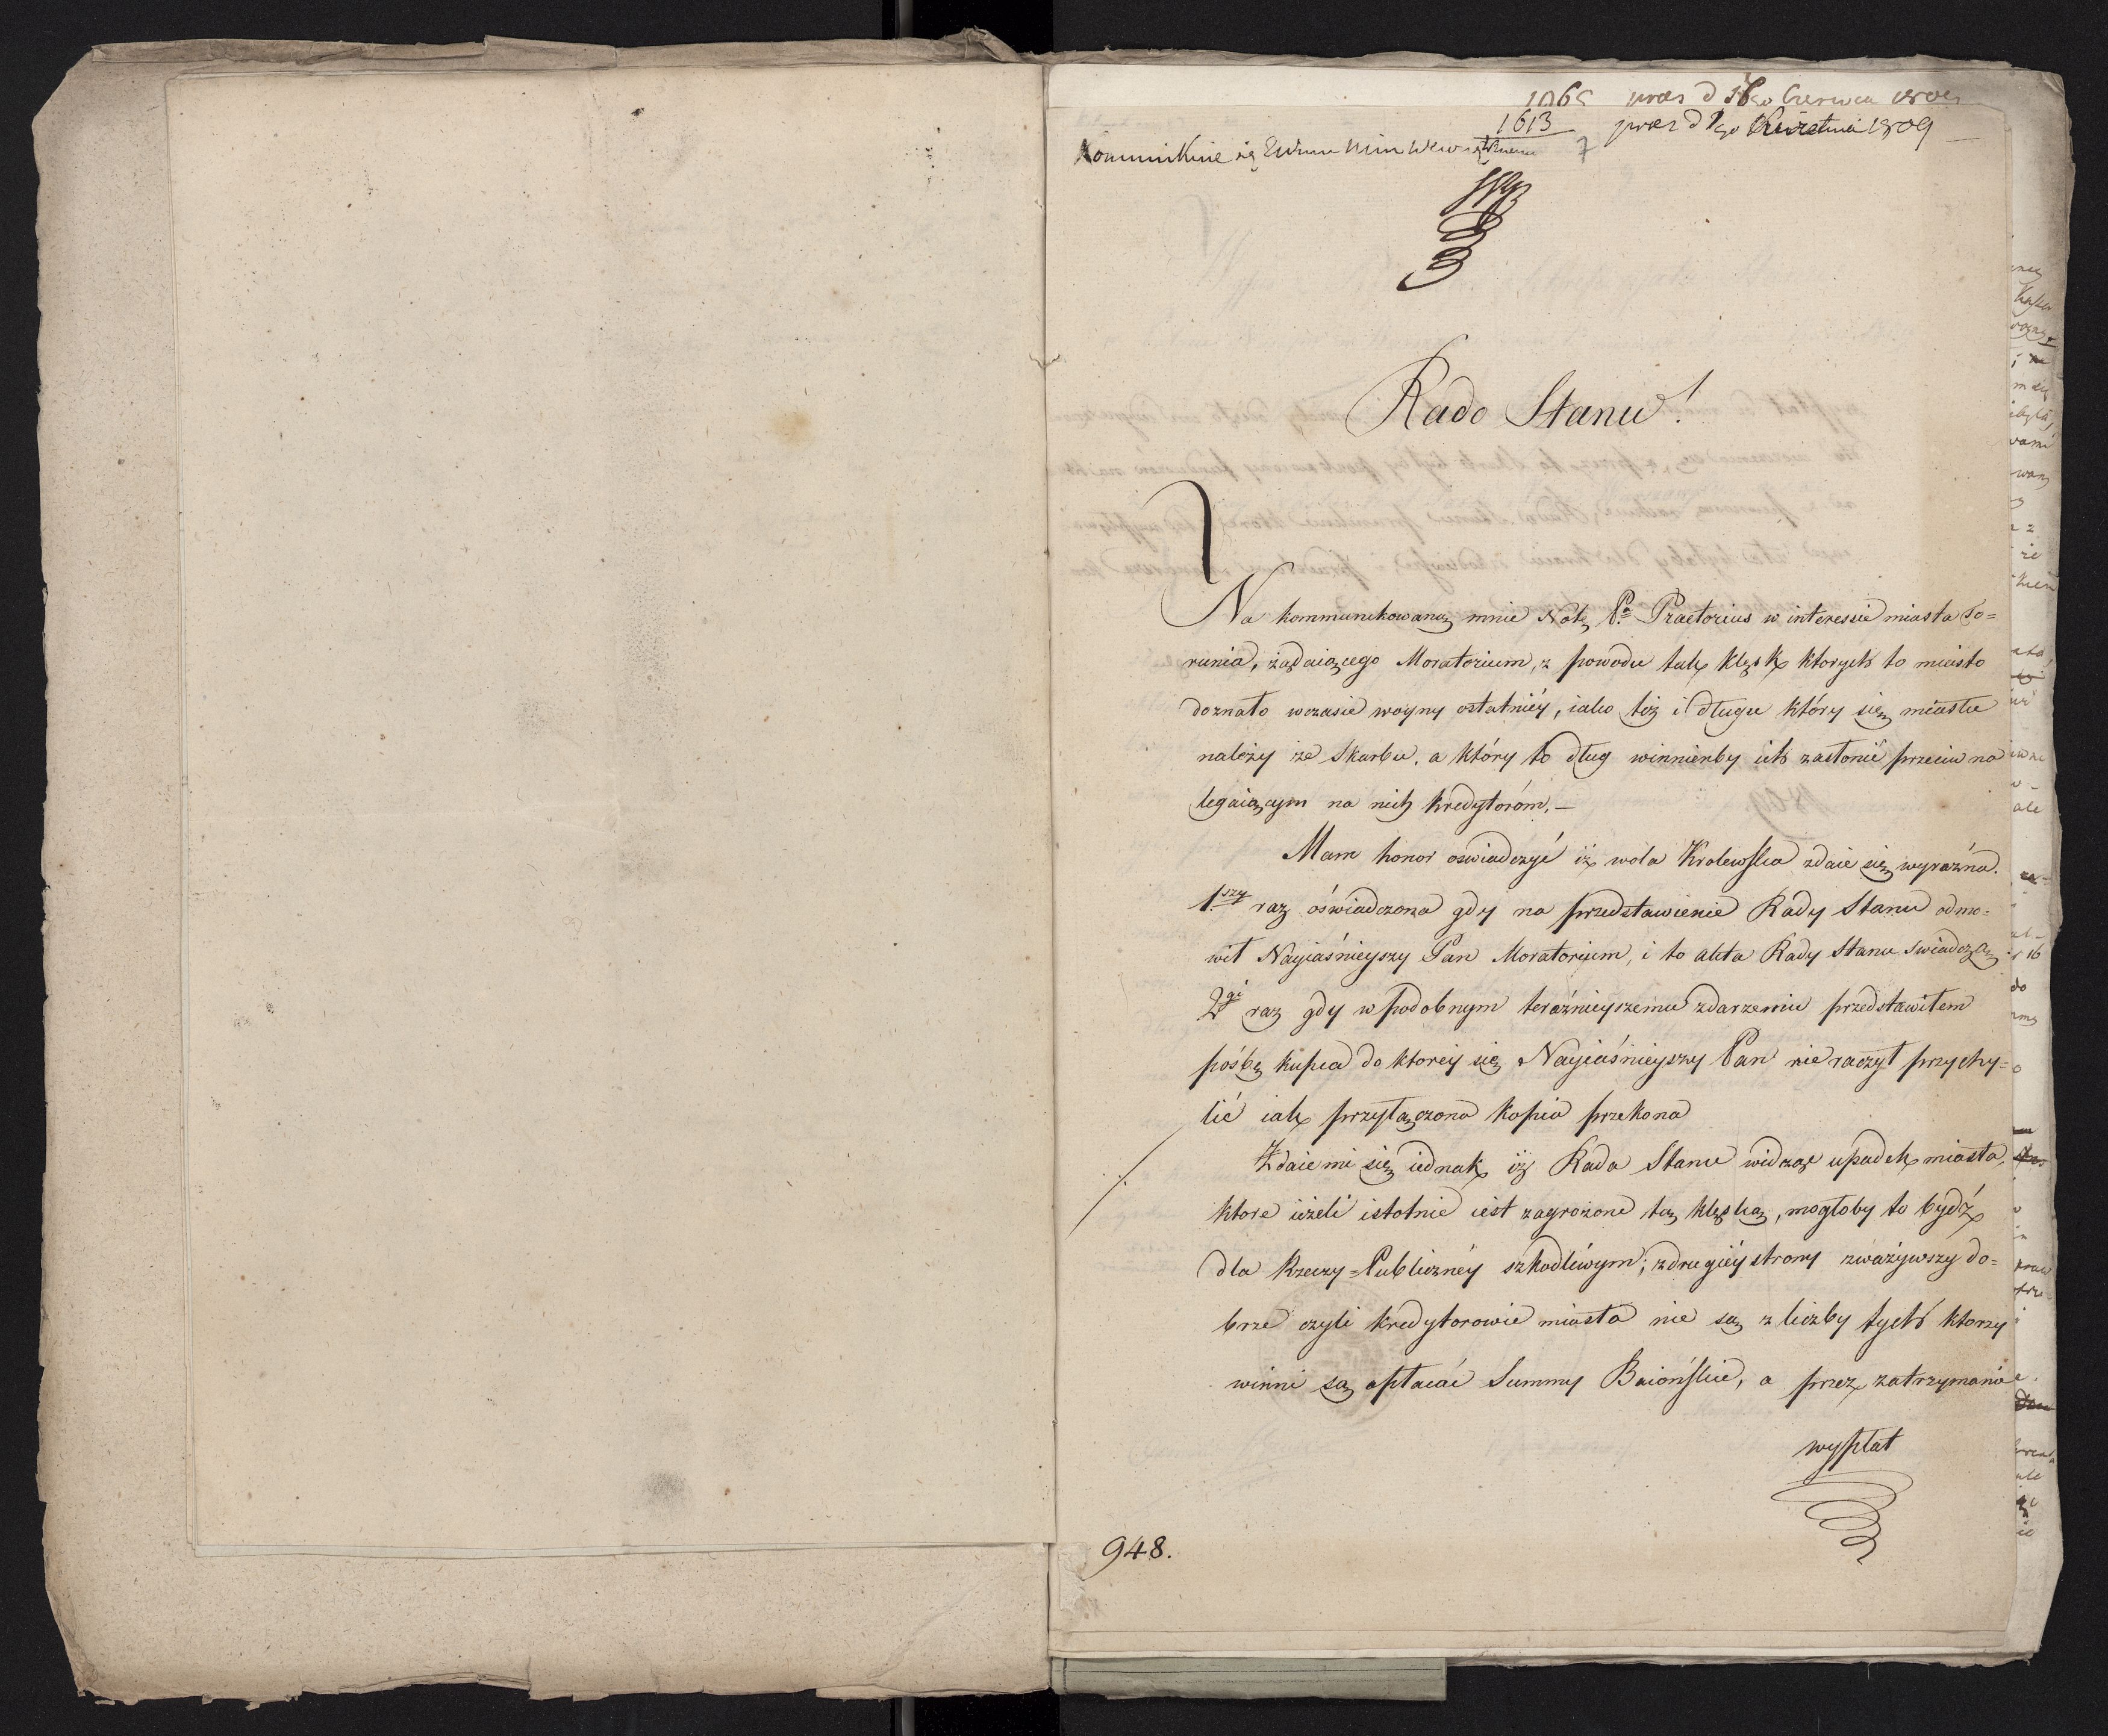 1613 praes d 1go Kwietnia 1809
Kommunikuie się
Rado Stanu!
Na kommunikowaną mnie Notę Pa Praetorius w interessie miasta To=
runia, żądaiącego Moratorium, z powodu tak klęsk ktorych to miasto
doznało wczasie woyny ostatniéy, iako też i długu który się miastu
należy ze Skarbu, a który to dług winnienby ich zasłonić przeciw na
legaiącym na nich kredytoróm. —
Mam honor oswiadczyć iż wola Krolewska zdaie się wyraźna.
1szy raz oświadczona gdy na przedstawienie Rady Stanu odmo=
wił Nayiaśnieyszy Pan Moratorium, i to akta Rady Stanu swiadczą.
2gi raz gdy w podobnym teraźnieyszemu zdarzeniu przedstawiłem
pośbę kupca do ktorey się Nayiaśnieyszy Pan nie raczył przychy=
lić iak przyłączona kopia przekona
Zdaie mi się iednak iż Rada Stanu widząc upadek miasta,
ktore ieżeli istotnie iest zagrożone tą klęską, mogłoby to bydź
dla Rzeczy=Publiczney szkodliwym; z drugiéy strony zważywszy do=
brze czyli kredytorowie miasta nie są z liczby tych ktorzy
winni są opłacać Summy Baiońskie, a przez zatrzymanie
wypłat
948.